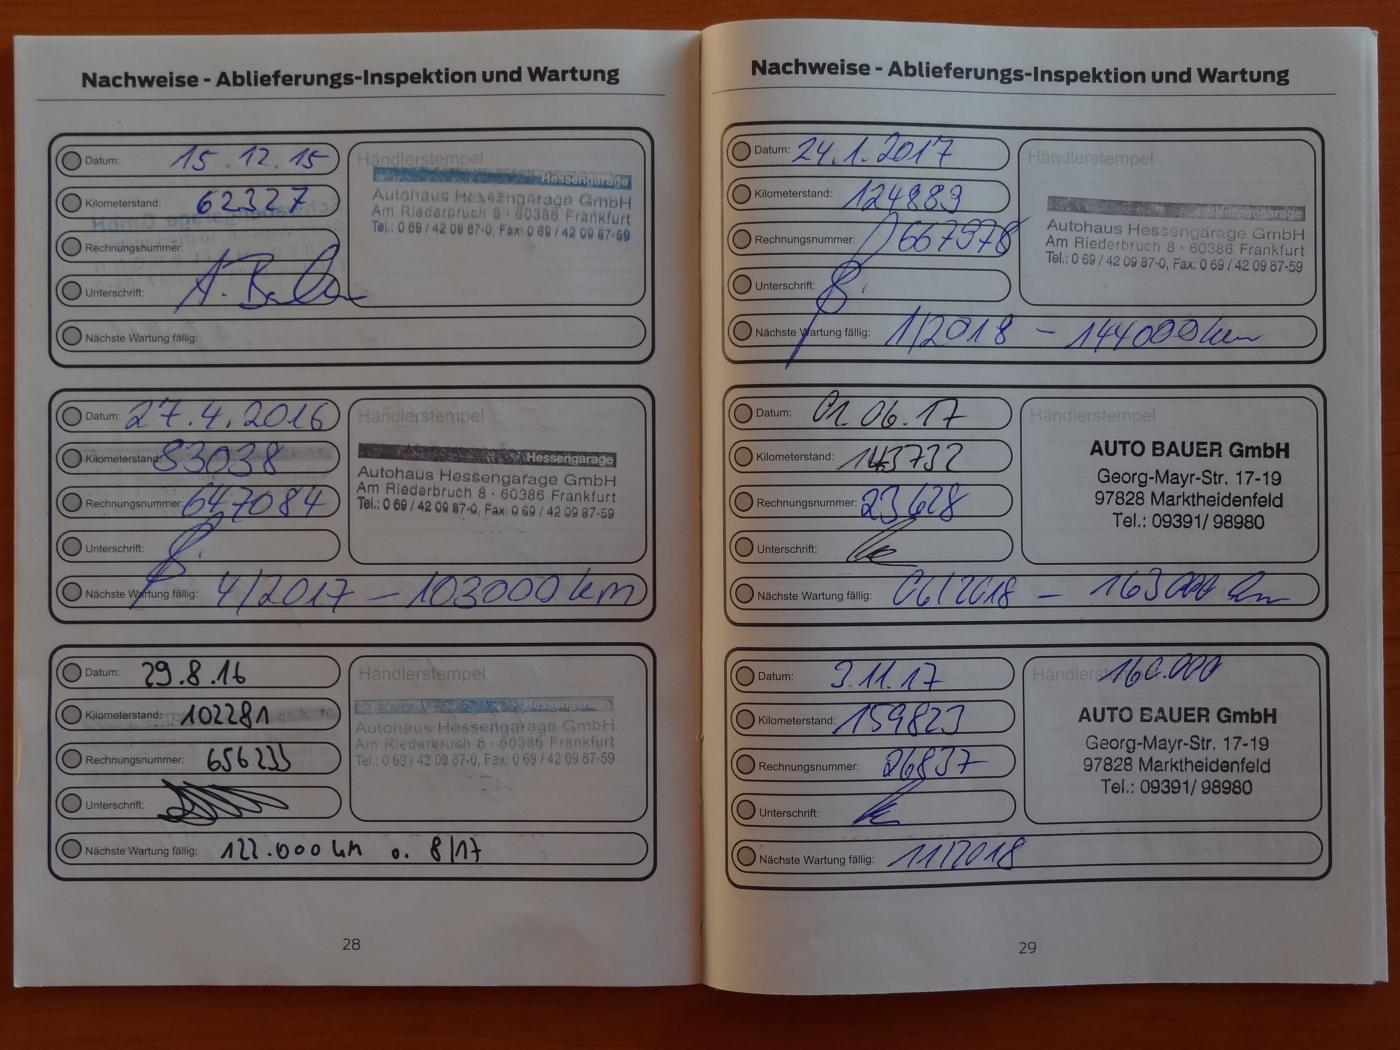 Nachweise - Ablieferungs-Inspektion und Wartung
Datum: 15.12.15
Kilometerstand: 62327
Rechnungsnummer:
Unterschrift:
Nächste Wartung fällig:
Händlerstempel
Hessengarage
Autohaus Hessengarage GmbH
Am Riederbruch 8 · 60386 Frankfurt
Tel.: 0 69 / 42 09 87-0, Fax: 0 69 / 42 09 87-59
Datum: 27.4.2016
Kilometerstand: 83038
Rechnungsnummer: 647084
Unterschrift:
Nächste Wartung fällig: 4/2017 - 103000 km
Händlerstempel
Hessengarage
Autohaus Hessengarage GmbH
Am Riederbruch 8 · 60386 Frankfurt
Tel.: 0 69 / 42 09 87-0, Fax: 0 69 / 42 09 87-59
Datum: 29.8.16
Kilometerstand: 102281
Rechnungsnummer: 656233
Unterschrift:
Nächste Wartung fällig: 122.000 km o. 8/17
Händlerstempel
Hessengarage
Autohaus Hessengarage GmbH
Am Riederbruch 8 · 60386 Frankfurt
Tel.: 0 69 / 42 09 87-0, Fax: 0 69 / 42 09 87-59
28
Nachweise - Ablieferungs-Inspektion und Wartung
Datum: 24.1.2017
Kilometerstand: 124889
Rechnungsnummer: 667978
Unterschrift:
Nächste Wartung fällig: 1/2018 - 144000 km
Händlerstempel
Hessengarage
Autohaus Hessengarage GmbH
Am Riederbruch 8 · 60386 Frankfurt
Tel.: 0 69 / 42 09 87-0, Fax: 0 69 / 42 09 87-59
Datum: 01.06.17
Kilometerstand: 143732
Rechnungsnummer: 23628
Unterschrift:
Nächste Wartung fällig: 06/2018 - 163000 km
Händlerstempel
AUTO BAUER GmbH
Georg-Mayr-Str. 17-19
97828 Marktheidenfeld
Tel.: 09391/ 98980
Datum: 3.11.17
Kilometerstand: 159823
Rechnungsnummer: 26837
Unterschrift:
Nächste Wartung fällig: 11/2018
Händlerstempel 160.000
AUTO BAUER GmbH
Georg-Mayr-Str. 17-19
97828 Marktheidenfeld
Tel.: 09391/ 98980
29